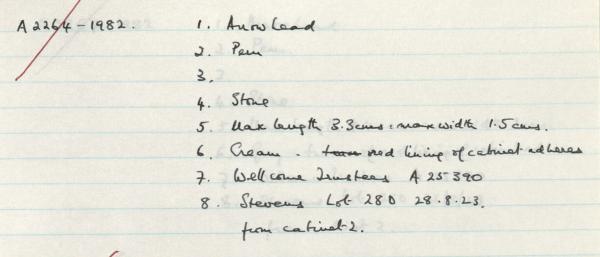 A 2264-1982. 1. Arrowhead
2. Peru
3.
4. Stone
5. Max length 3.3cms : max width 1.5 cms.
6. Cream. red lining of cabinet adheres
7. Wellcome Trustees A 25390
8. Stevens Lot 280 28.8.23.
from cabinet 2.